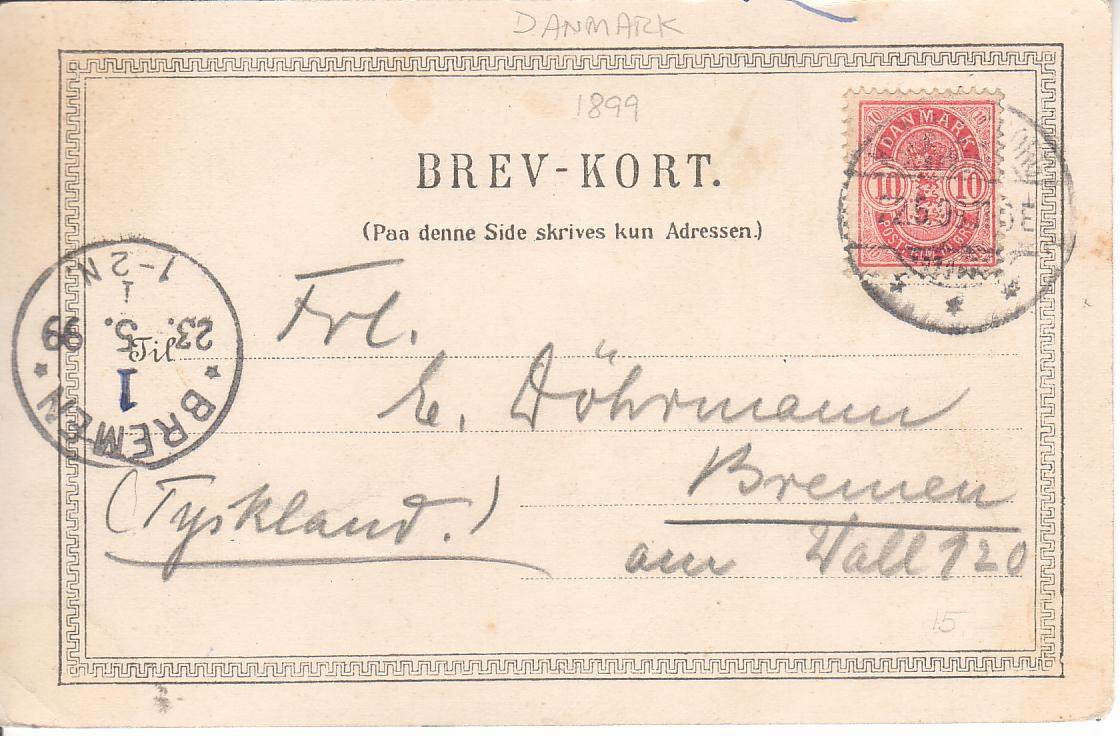 DANMARK
1899
BREV-KORT.
(Paa denne Side skrives kun Adressen.)
DANMARK
10 10
POSTFRIM
10 10
Til
Frl.
E. Döhrmann
Bremen
(Tyskland.)
am Wall 120
15
BREMEN
1
23. 5. 99
1-2 N
1